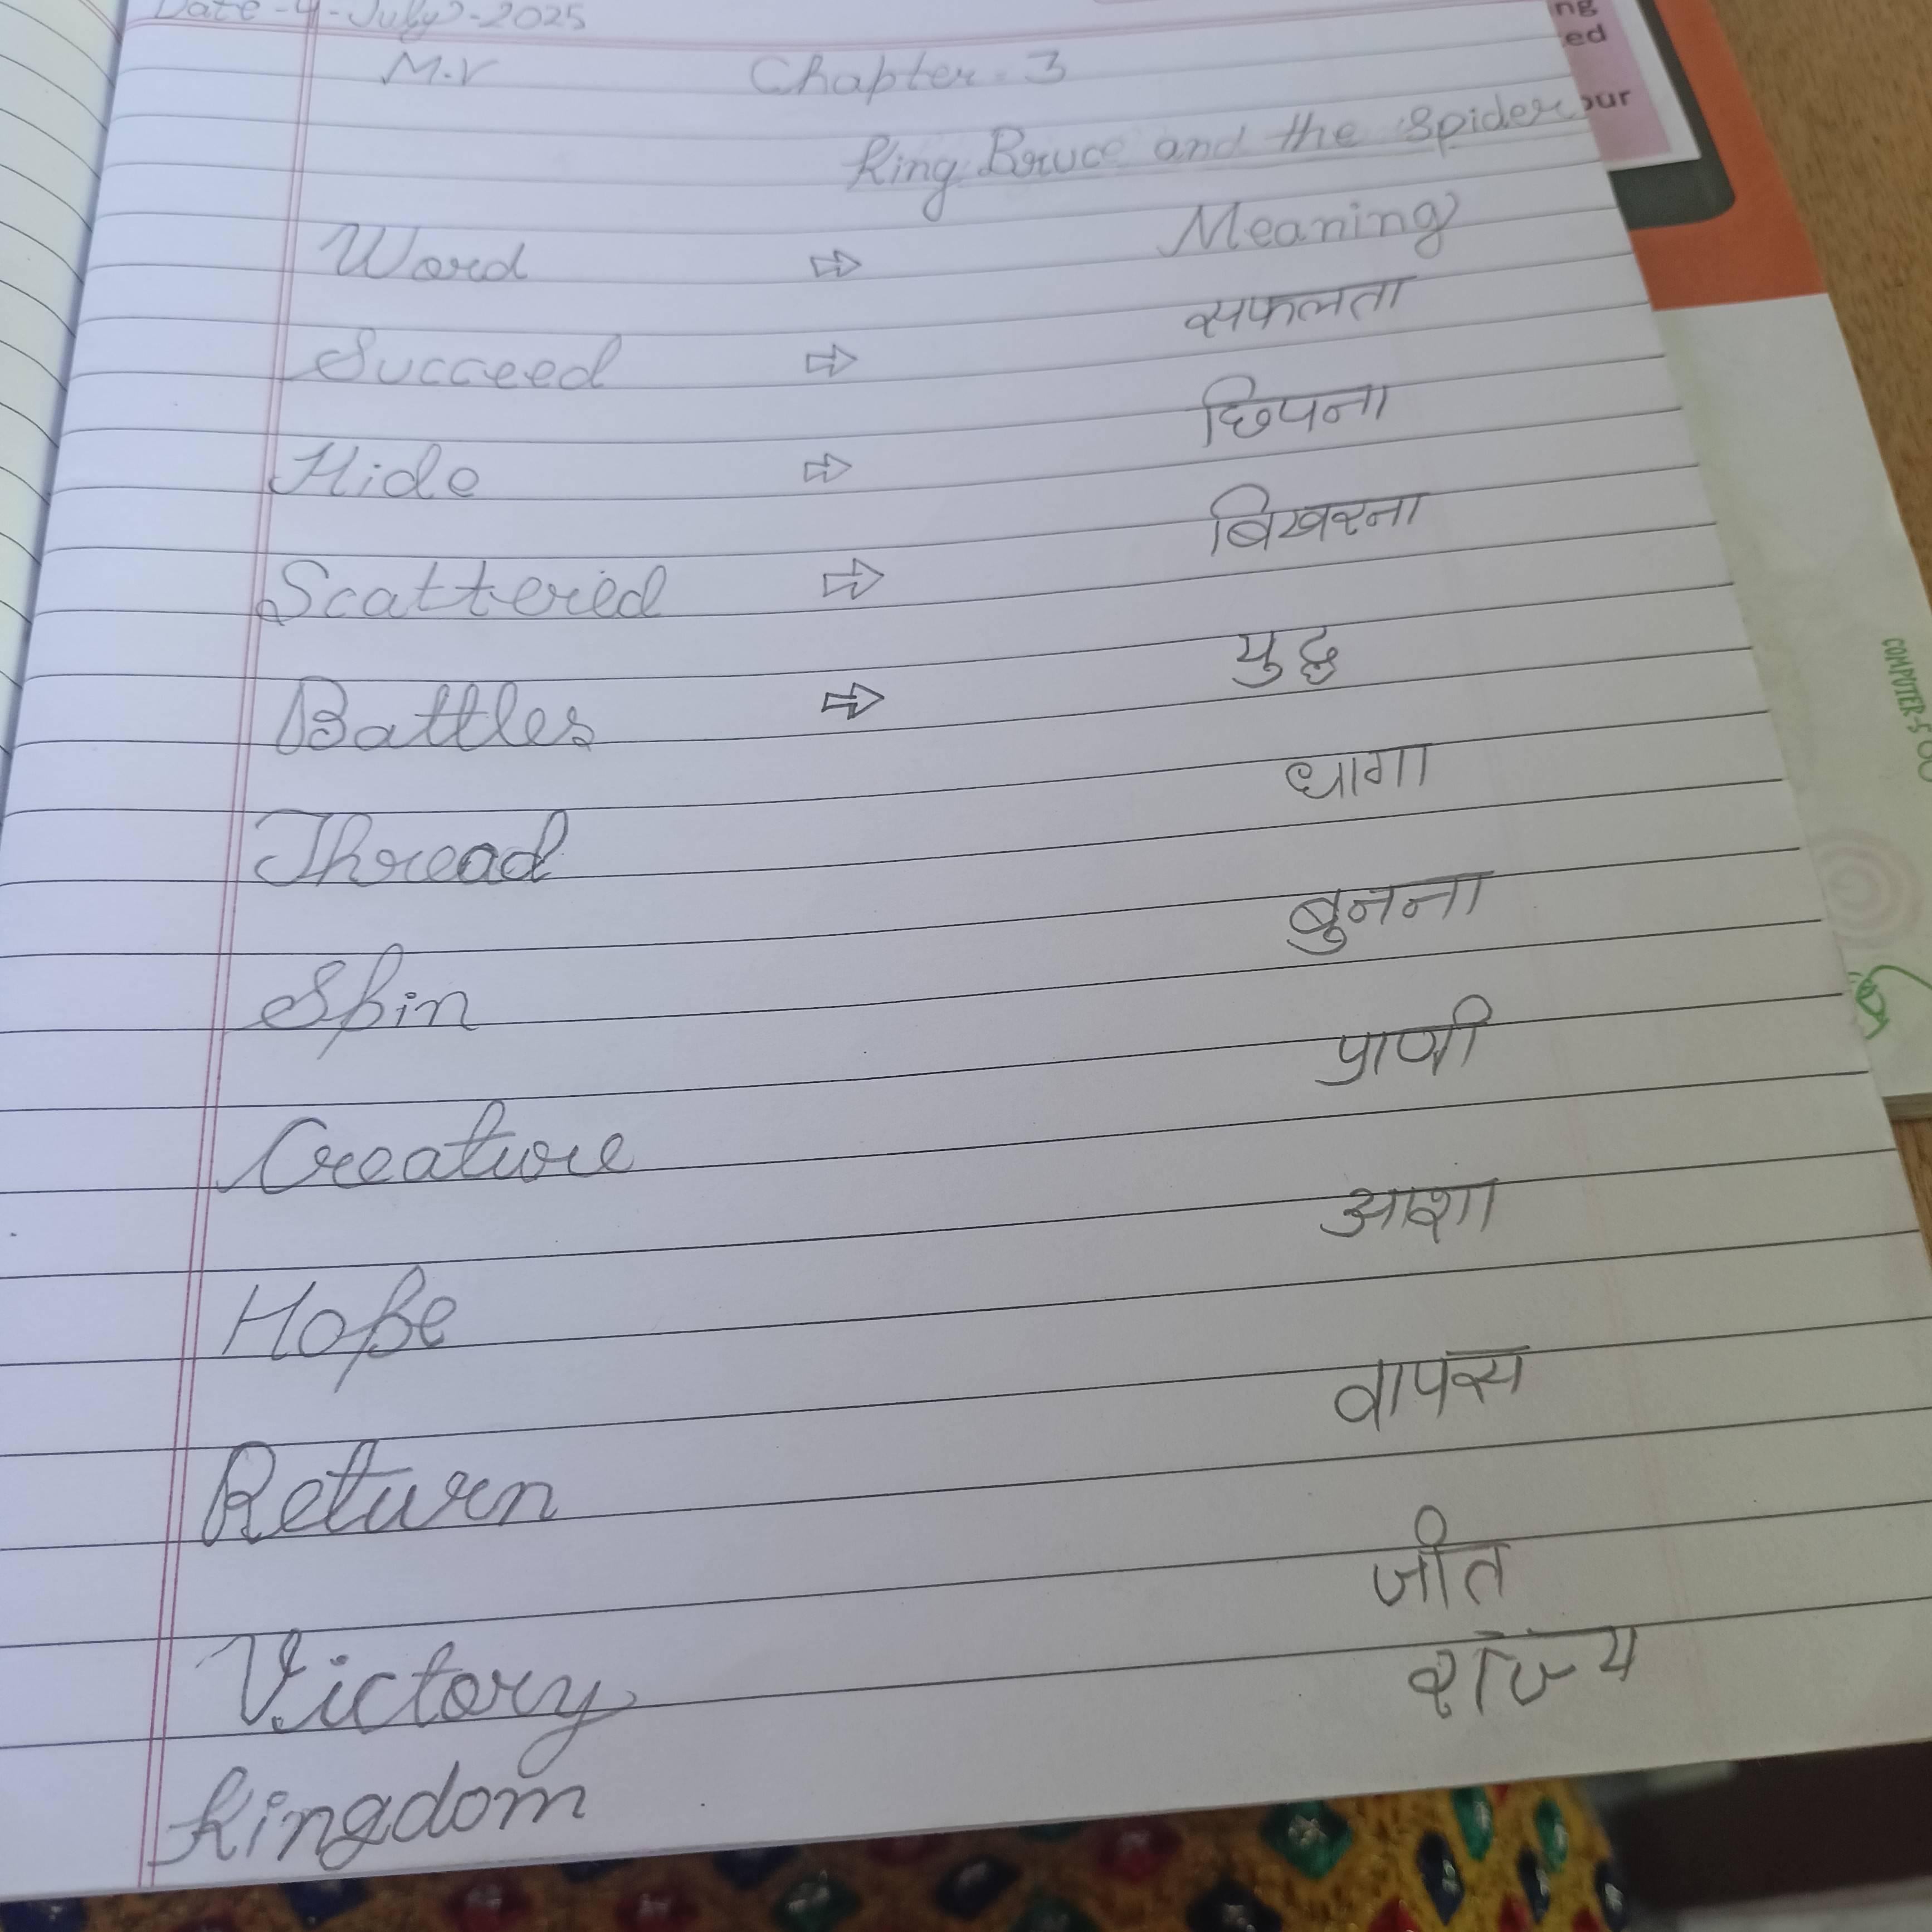 Date-4-July-2025
M.V Chapter-3
King Bruce and the Spider
Word ⇨ Meaning
Succeed ⇨ सफलता
Hide ⇨ छिपना
Scattered ⇨ बिखरना
Battles ⇨ युद्ध
Thread धागा
Spin बुनना
Creature प्राणी
Hope आशा
Return वापस
Victory जीत
Kingdom राज्य
ng
ed
our
COMPUTER-5